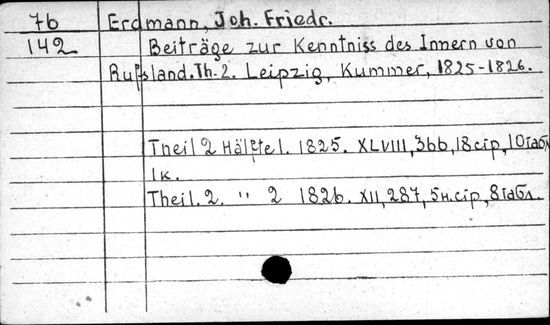 76 Erdmann, Joh. Friedr.
142 Beiträge zur Kenntniss des Innern von
Rußland. Th. 2. Leipzig, Kummer, 1825-1826.
Theil 2 Hälfte 1. 1825. XLVIII, 366, 18 cip, 10 табл
1 к.
Theil. 2. " 2 1826. XII, 287, 5 н.cip, 8 табл.